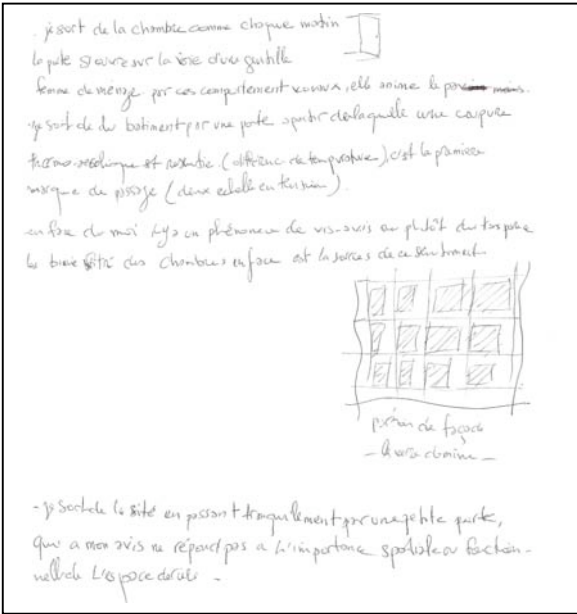 . je sort de la chambre comme chaque matin
la porte s'ouvre sur la voie d'une gentille
femme de ménage. par ces comportement, elle anime le
- je sort de du batiment par une porte apartir de laquelle une coupure
thermo- et ressentie (différence de température), c'est la première
marque de passage (deux echelle en tension).
en face du moi il y a un phénomène de vis-avis ou plutôt de
la baie vitré des chambres en face est la sources de ce sentiment
portion de façade
- le verre domine -
- je sort de la sité en passant tranquilement par une petite porte,
qui a mon avis ne répond pas a L'importance spatiale ou fonction-
nelle de L'espace